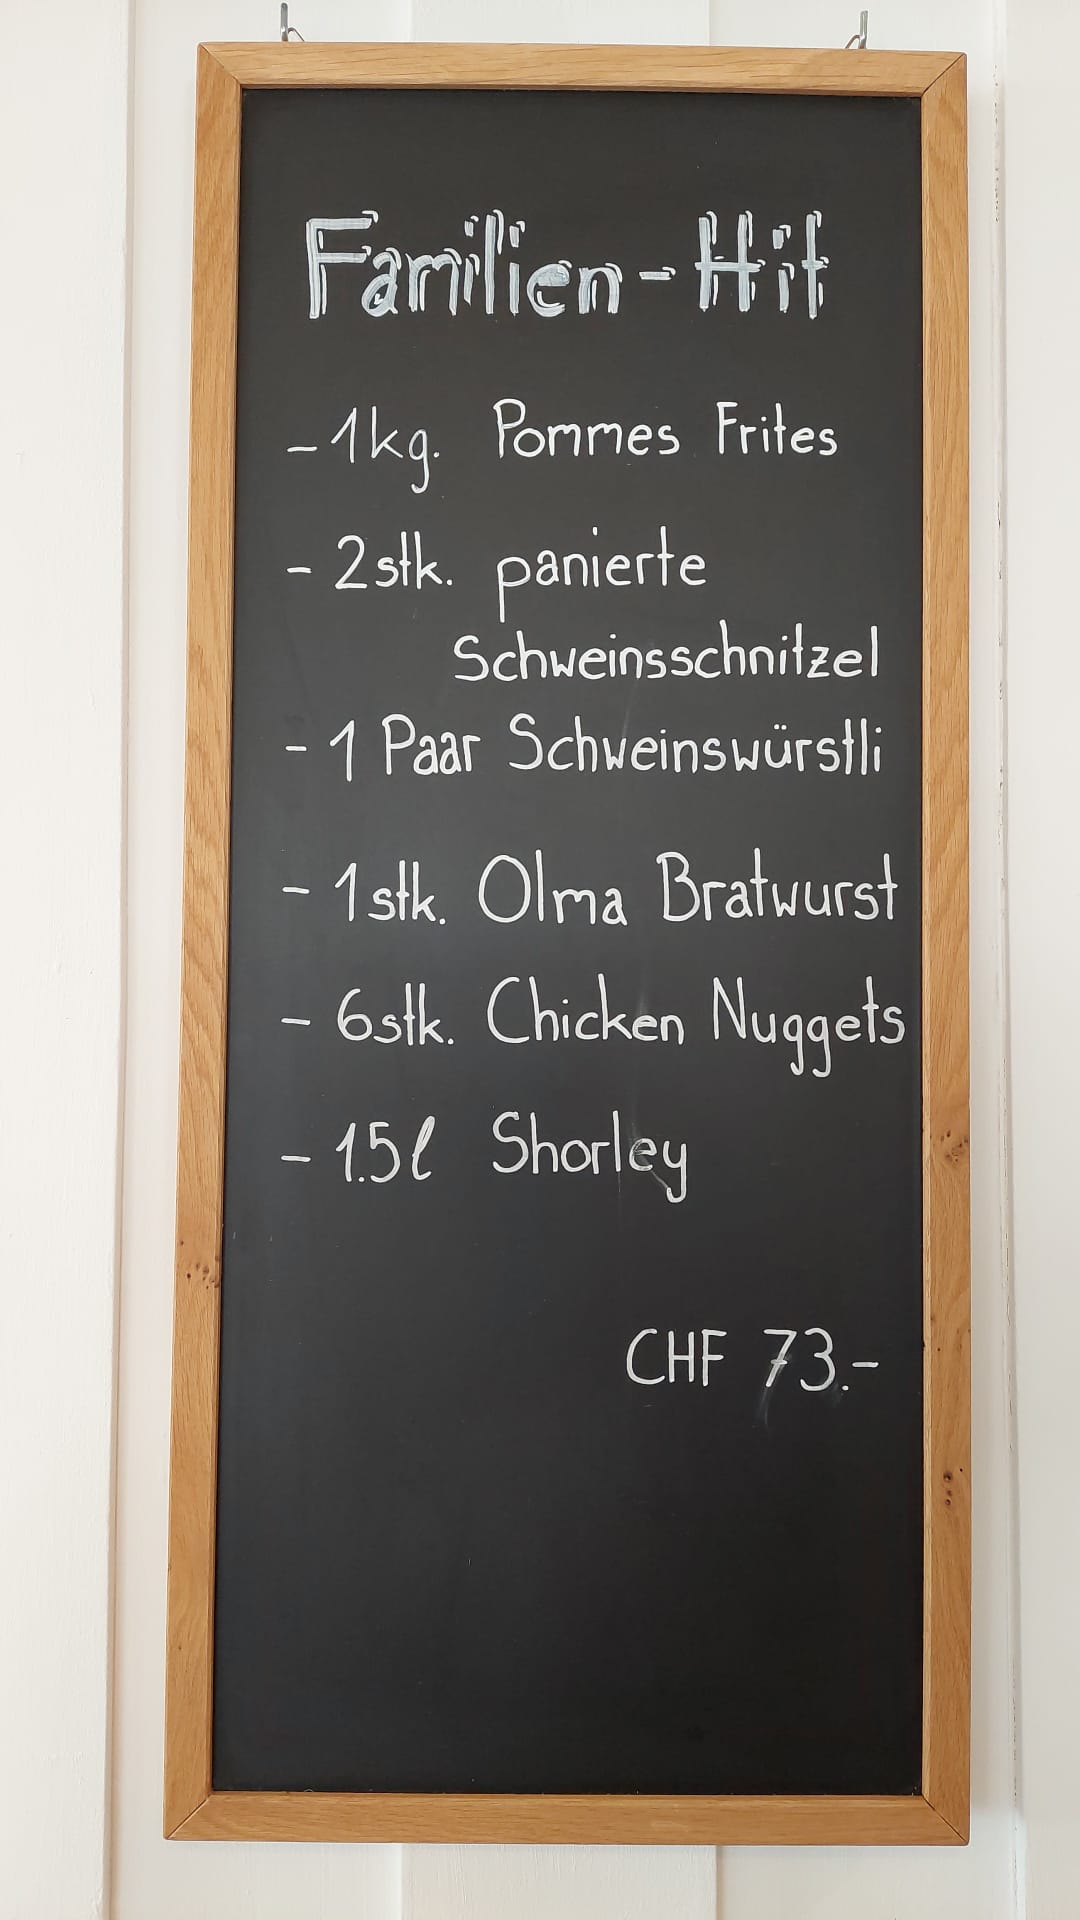 Familien-Hit
- 1kg. Pommes Frites
- 2stk. panierte
Schweinsschnitzel
- 1 Paar Schweinswürstli
- 1stk. Olma Bratwurst
- 6stk. Chicken Nuggets
- 1.5l Shorley
CHF 73.-